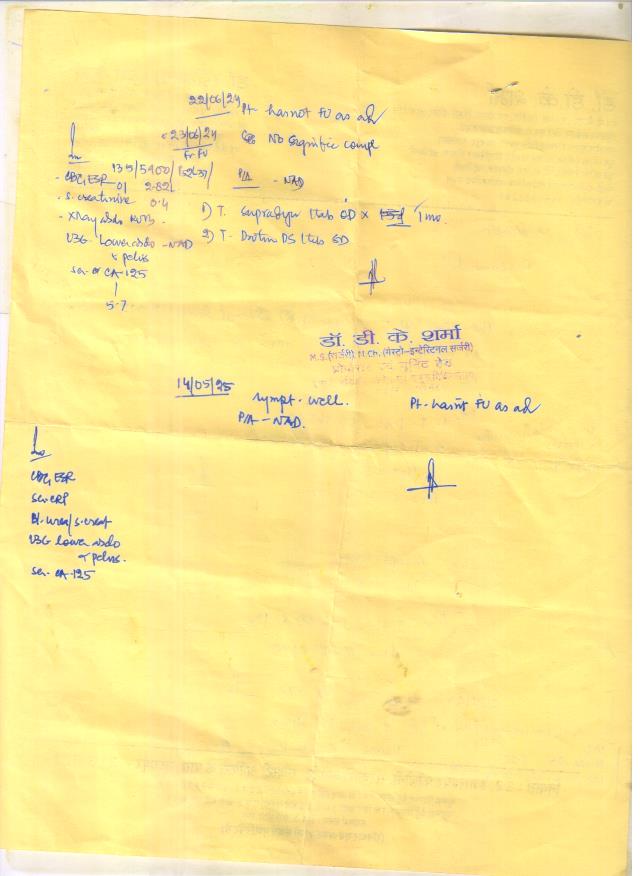 22/06/24 Pt- has not FU as ad
23/06/24 No significt compl
for FU
Inv
- CBC, ESR 13.5/5900/
01 2.82
P/A - NAD
- S. creatinine 0.4
1) T. Supradyn 1 tab OD x 1 mo.
- Xray abdo KUB
USG- Lower abdo - NAD
& pelvis
2) T. DS 1 tab
ser CA-125
5.7
डॉ. डी. के. शर्मा
M.S.(सर्जरी) M.Ch.(गेस्ट्रो-इन्टेस्टिनल सर्जरी)
प्रोफेसर एवं यूनिट हैड
14/05/25 Sympt. well. Pt- hasn't FU as ad
P/A - NAD.
Inv
CBC, ESR
Ser. CRP
Bl. urea/s. creat
USG lower abdo
& pelvis.
ser. CA-125